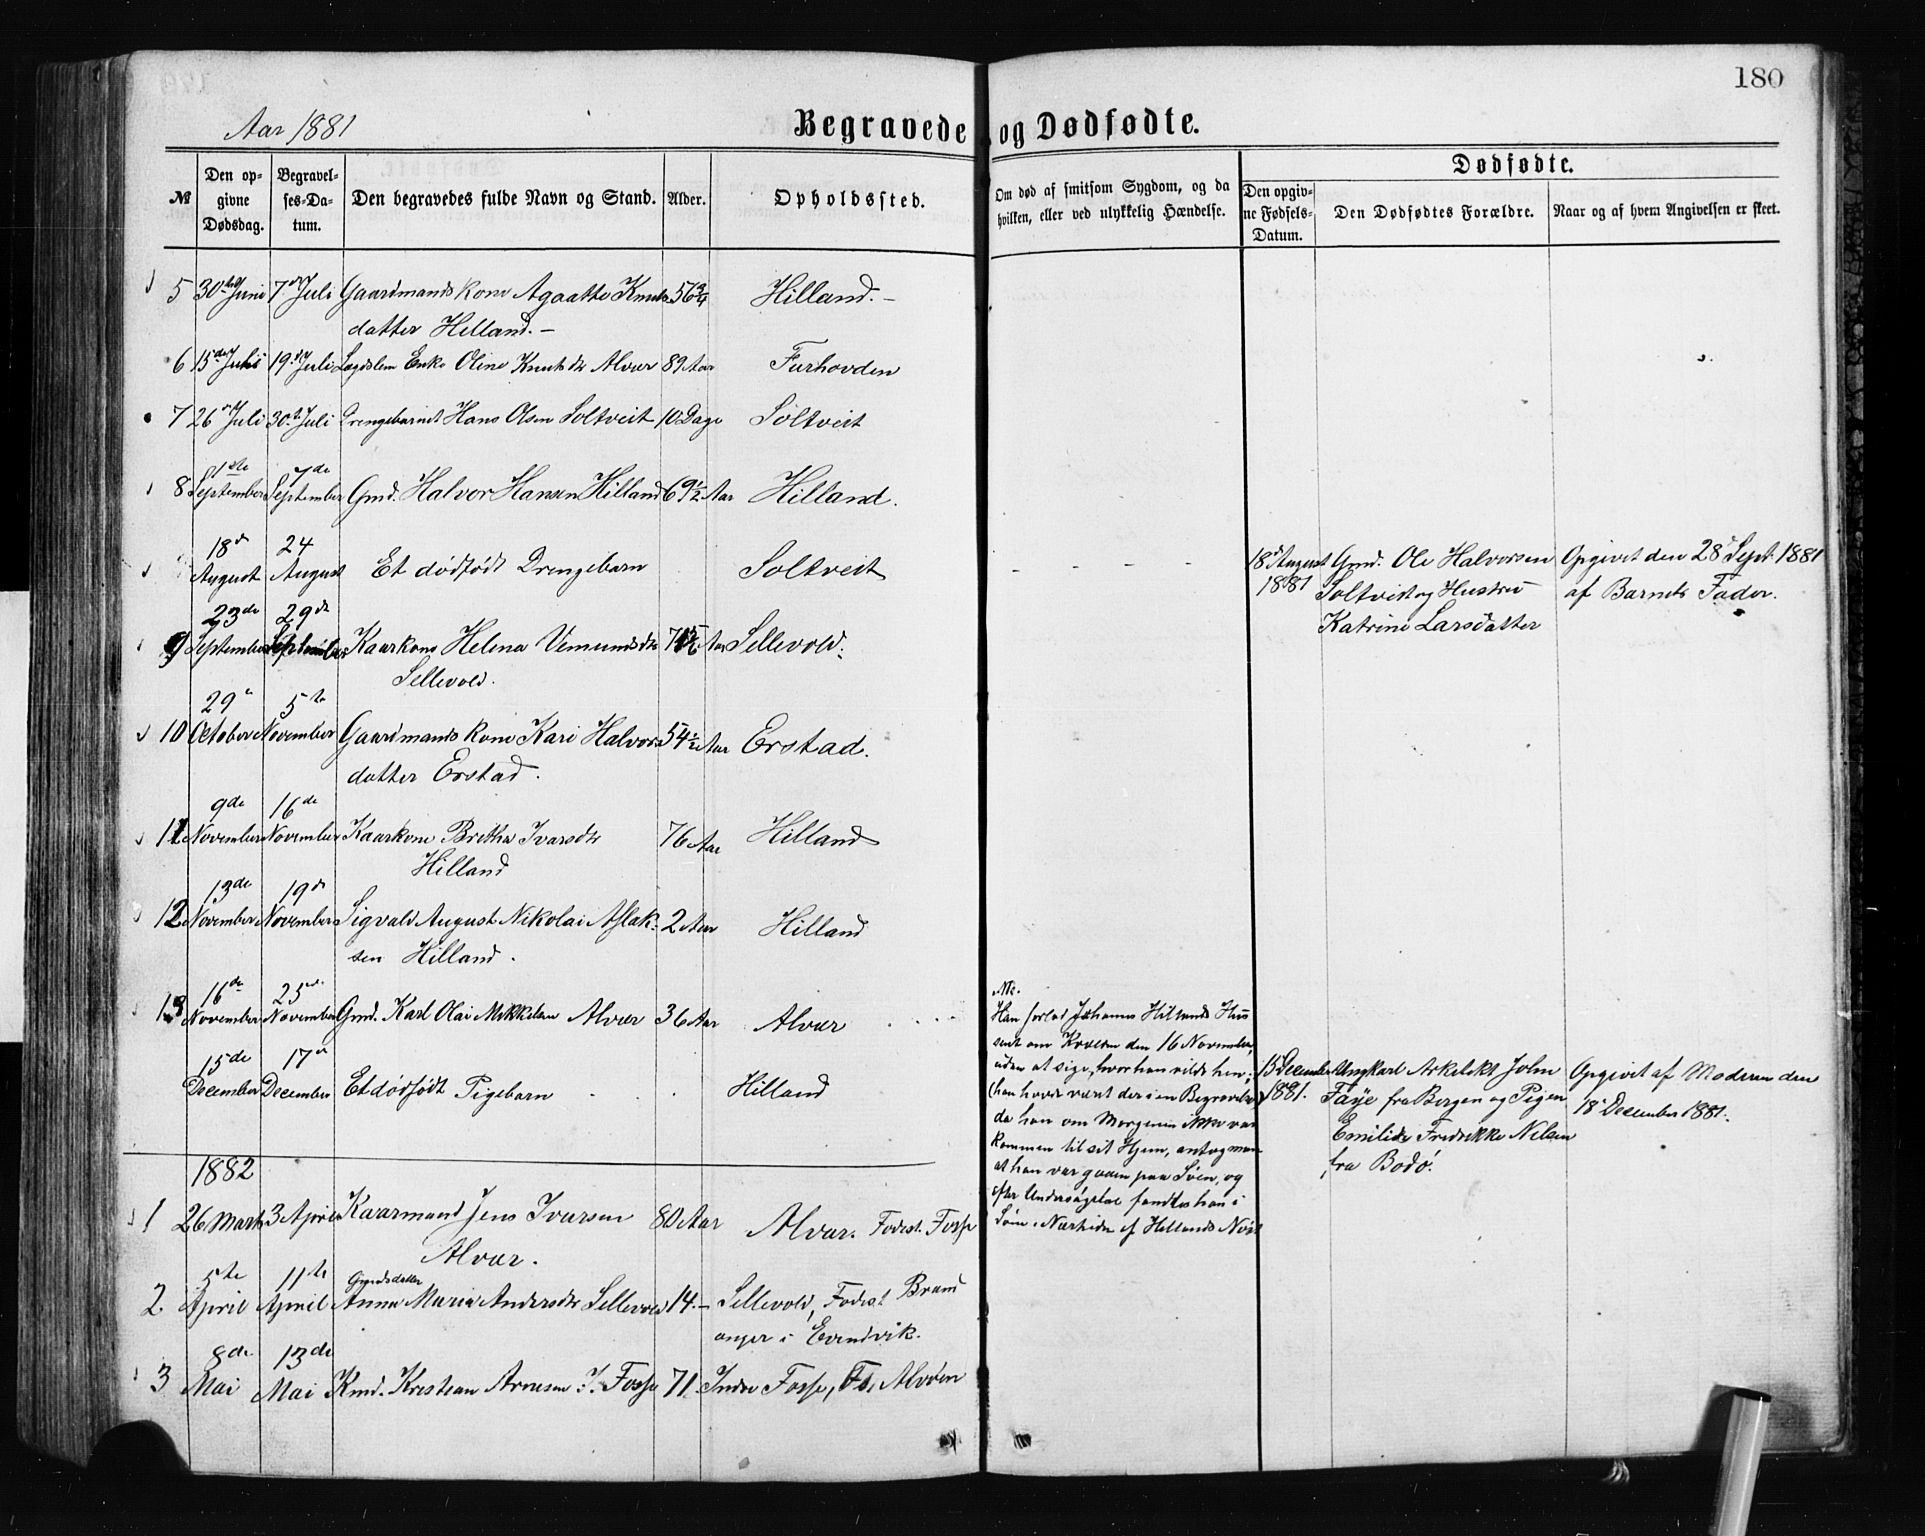 180
Aar 1881
Begravede og Dødfødte.
Dødfødte.
№
Den opgivne Dødsdag.
Begravelses-Datum.
Den begravedes fulde Navn og Stand.
Alder.
Opholdssted.
Om død af smitsom Sygdom, og da hvilken, eller ved ulykkelig Hændelse.
Den opgivne Fødsels-Datum.
Den Dødfødtes Forældre.
Naar og af hvem Angivelsen er skeet.
5 30te Juni 7de Juli Gaardmandskone Agaatte Knuts 56 3/4 Hilland.-
datter Hilland.-
6 15de Juli 19de Juli Lægdslem Enke Oline Knutsdtr Alvær 89 Aar Furhovden
7 26de Juli 30te Juli Drengebarnet Hans Olsen Soltveit 10 Dage Soltveit
1ste 7de
8 September September Gmd. Halvor Hansen Hilland 69 1/2 Aar Hilland.
18de 24
August August Et dødfødt Drengebarn Soltveit - - - - 18de August Gmd. Ole Halvorsen Opgivet den 28de Sept. 1881
1881 Soltveit og Hustru af Barnets Fader.
Katrine Larsdatter
23de 29de
9 September September Kaarkone Helena Vemundsdtr Aar Sellevold.
Sellevold.
29de 5te
10 October November Gaardmandskone Kari Halvors 54 1/2 Aar Erstad.
datter Erstad.
9de 16de
11 November November Kaarkone Britha Ivarsdtr 76 Aar Hilland
Hilland
13de 19de
12 November November Sigvald August Nikolai Aslak- 2 Aar Hilland
sen Hilland.
16de 25de
13 November November Gmd. Karl Olai Mikkelsen Alvær 36 Aar Alvær
Han forlod Johannes Hillands Hus
sent om Kvelden den 16 November,
uden at sige, hvor han vilde hen;
(han havde været der i en Begravelse)
da han om Morgenen ikke var
kommen til sit Hjem, antog man
at han var gaaen paa Søen, og
efter Undersøgelse fandtes han i
Søen i Nærheden af Hillands Nøst
15de 17de
December December Et dødfødt Pigebarn Hilland 15 December Ungkarl Arkitekt John Opgivet af Moderen den
1881. Faye fra Bergen og Pigen 18de December 1881.
Emilide Fredrikke Nilsen
fra Bodø.
1882
1 26 Marts 3 April Kaarmand Jens Ivarsen 80 Aar Alvær. Fødest. Fosse
Alvær.
5te 11te Gmdsdatter
2 April April Anna Maria Andersdtr Sellevold 14.- Sellevold, Fødest Brand
anger i Evendvik.
8de 13de
3 Mai Mai Kmd. Kristian Arnesen I. Fosse 71 Indre Fosse, Fø. Alvøen